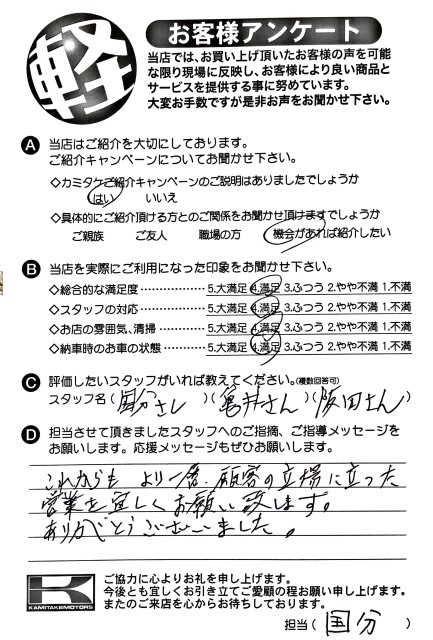 軽
お客様アンケート
当店では、お買い上げ頂いたお客様の声を可能
な限り現場に反映し、お客様により良い商品と
サービスを提供する事に努めています。
大変お手数ですが是非お声をお聞かせ下さい。
A 当店はご紹介を大切にしております。
ご紹介キャンペーンについてお聞かせ下さい。
◇カミタケご紹介キャンペーンのご説明はありましたでしょうか
はい いいえ
◇具体的にご紹介頂ける方とのご関係をお聞かせ頂けますでしょうか
ご親族 ご友人 職場の方 機会があれば紹介したい
B 当店を実際にご利用になった印象をお聞かせ下さい。
◇総合的な満足度‥‥‥‥‥ 5.大満足 4.満足 3.ふつう 2.やや不満 1.不満
◇スタッフの対応‥‥‥‥‥ 5.大満足 4.満足 3.ふつう 2.やや不満 1.不満
◇お店の雰囲気、清掃‥‥‥ 5.大満足 4.満足 3.ふつう 2.やや不満 1.不満
◇納車時のお車の状態‥‥‥ 5.大満足 4.満足 3.ふつう 2.やや不満 1.不満
C 評価したいスタッフがいれば教えてください。(複数回答可)
スタッフ名(国分さん)(亀井さん)(阪田さん)
D 担当させて頂きましたスタッフへのご指摘、ご指導メッセージを
お願いします。応援メッセージもぜひお願いします。
これからも より一層、顧客の立場に立った
営業を宜しくお願い致します。
ありがとうございました。
KAMITAKEMOTORS
ご協力に心よりお礼を申し上げます。
今後とも宜しくお引き立てご愛顧の程お願い申し上げます。
またのご来店を心からお待ちしております。
担当(国分)